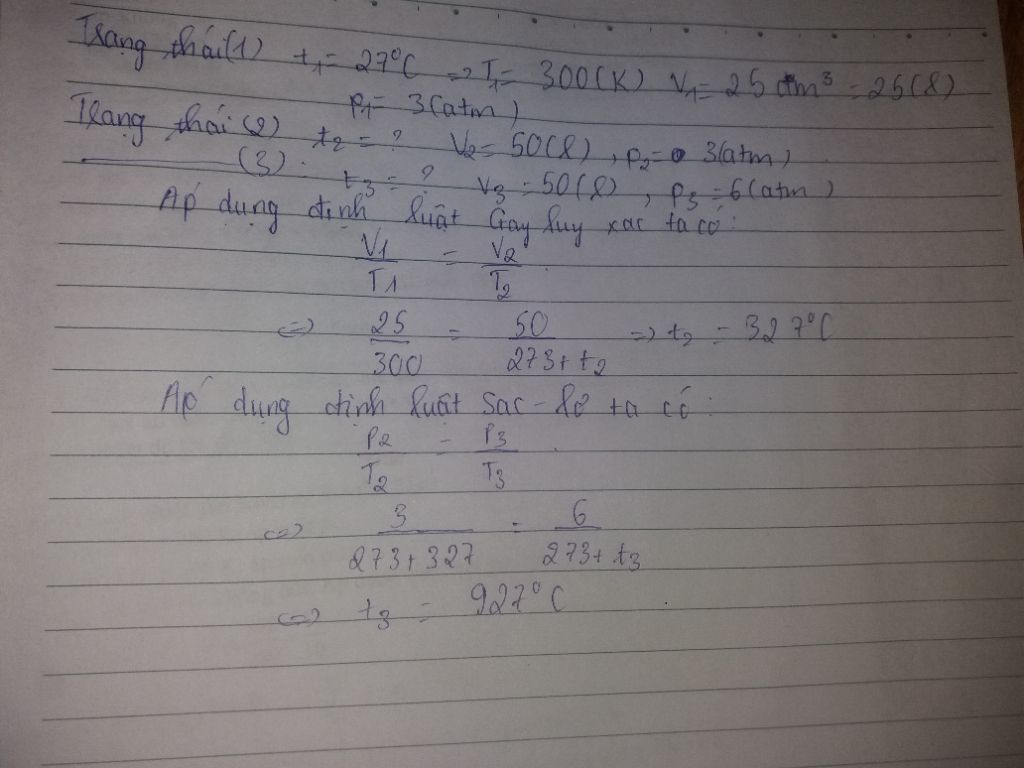 Trạng thái (1) t₁ = 27°C => T₁ = 300(K) V₁ = 25 dm³ = 25(l)
p₁ = 3(atm)
Trạng thái (2) t₂ = ? V₂ = 50(l), p₂ = 3(atm)
(3). t₃ = ? V₃ = 50(l), p₃ = 6(atm)
Áp dụng định luật Gay luy xac ta có:
V1/T1 = V2/T2
<=> 25/300 = 50/(273+t₂) => t₂ = 327°C
Áp dụng định luật Sac-lơ ta có:
P2/T2 = P3/T3
<=> 3/(273+327) = 6/(273+t₃)
<=> t₃ = 927°C